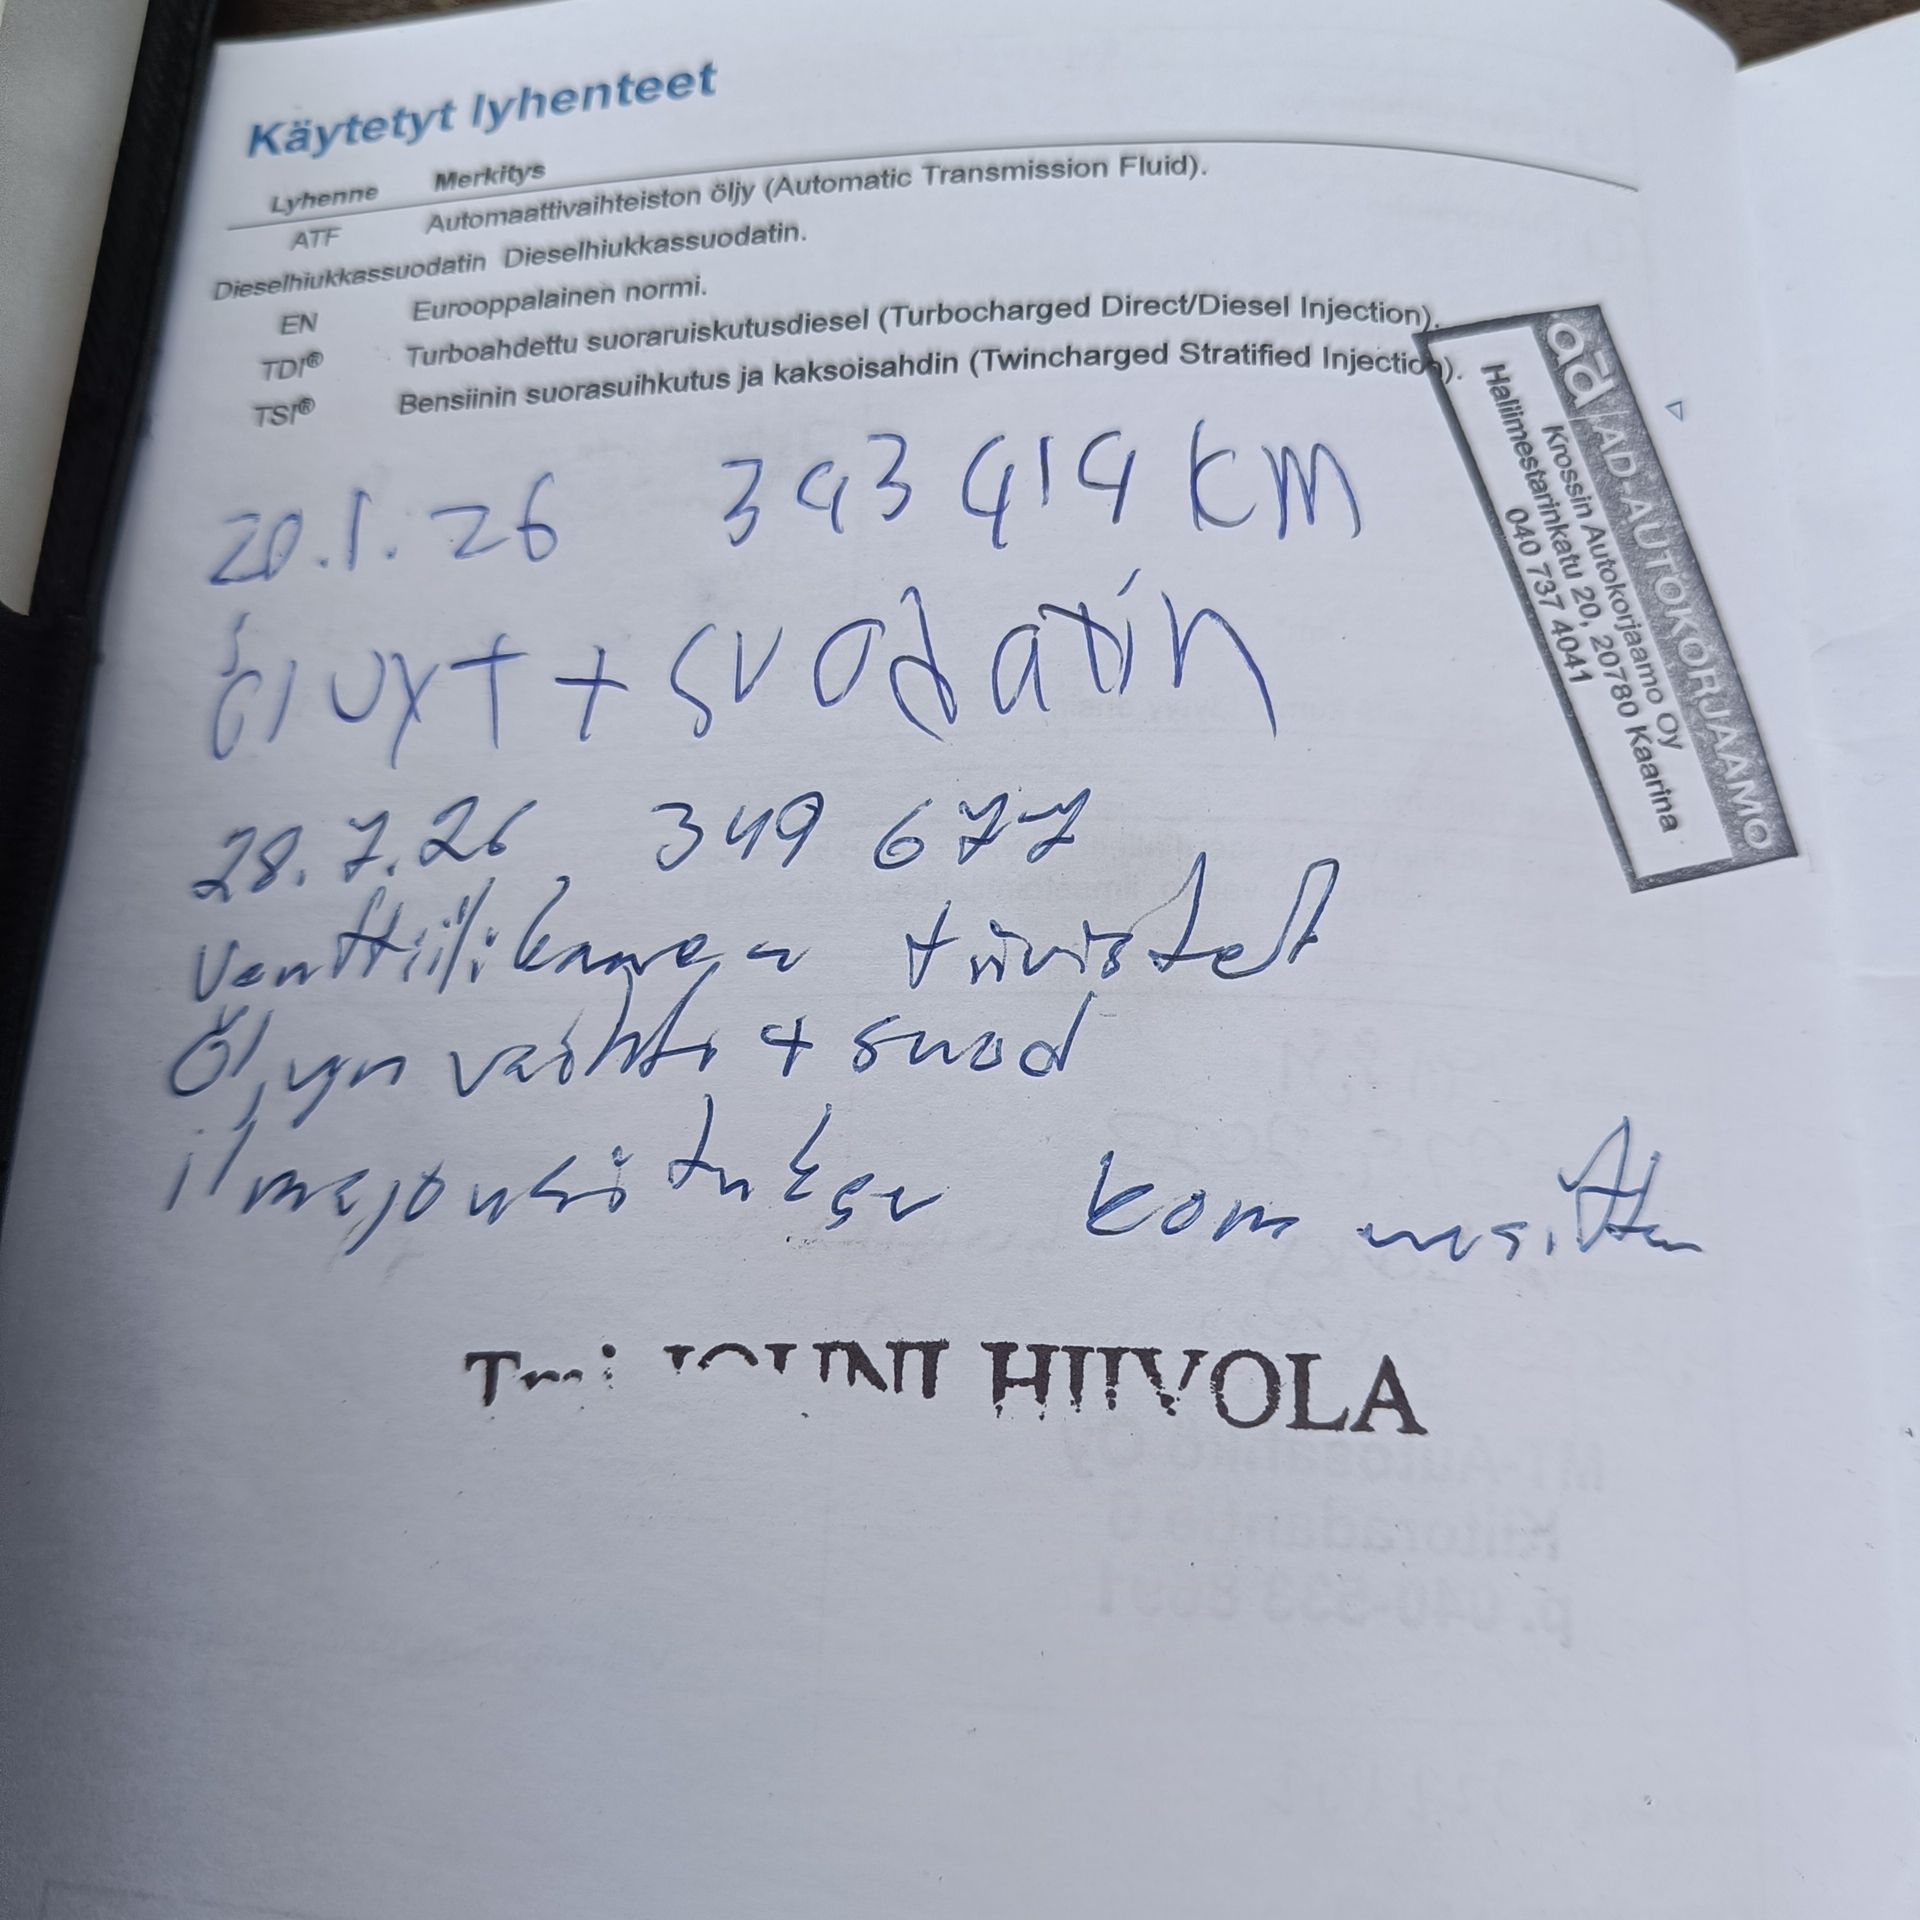 Käytetyt lyhenteet
Lyhenne Merkitys
ATF Automaattivaihteiston öljy (Automatic Transmission Fluid).
Dieselhiukkassuodatin Dieselhiukkassuodatin.
EN Eurooppalainen normi.
TDI® Turboahdettu suoraruiskutusdiesel (Turbocharged Direct/Diesel Injection).
TSI® Bensiinin suorasuihkutus ja kaksoisahdin (Twincharged Stratified Injection).
ad AD-AUTOKORJAAMO
Krossin Autokorjaamo Oy
Hallimestarinkatu 20, 20780 Kaarina
040 737 4041
20.1.26 343 414 KM
+ suodatin
28.7.26 349 677
Venttiilikanen tiivistet
Öljyn vaihto + suod
ilmajousituksen
Tmi JOUNI HIIVOLA